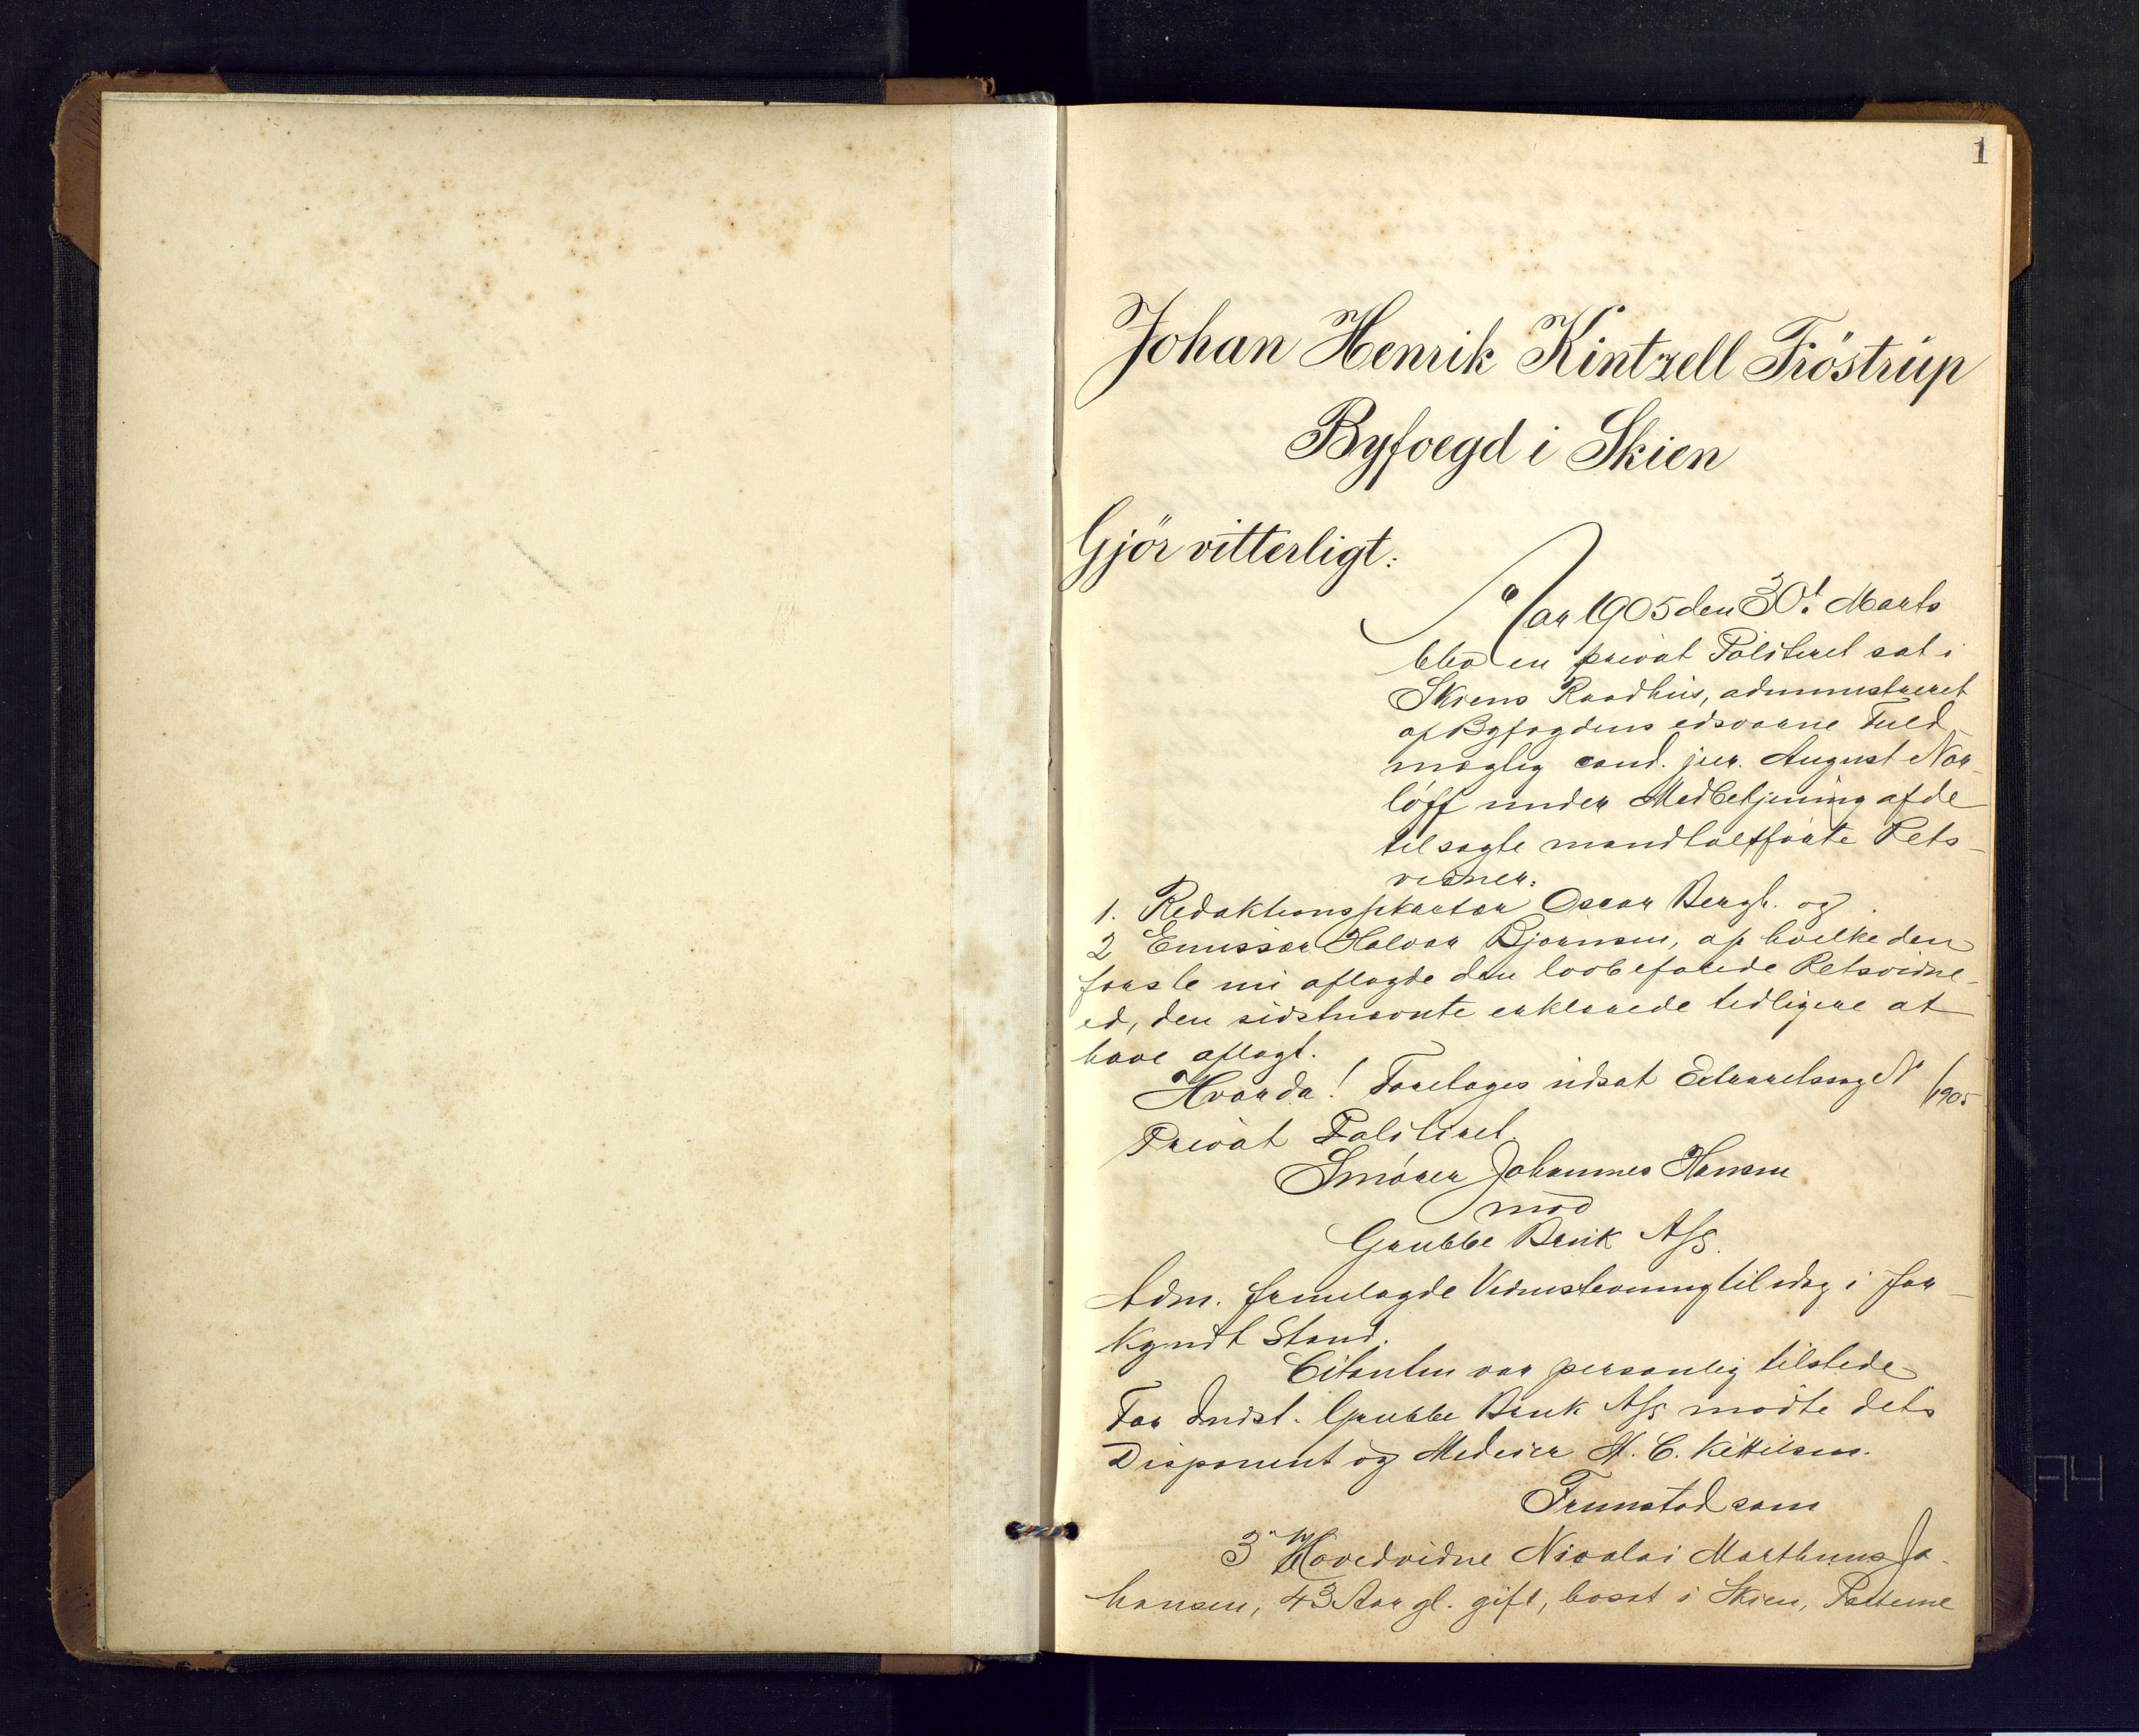 1
Johan Henrik Kintzell Fröstrup
Byfoegd i Skien
Gjör vitterligt:
Aar 1905 den 30t Marts
blev en privat Politiret sat i
Skiens Raadhus, administreret
af Byfogdens edsvorne Fuld-
mægtig cand. jur. August Nor-
löff under Medbetjening af de
tilsagte mandtalsførte Rets-
vidner:
1. Redaktionssekretær Oscar Bergh. og
2 Emissær Halvor Bjørnsen, af hvilke den
første nu aflagde den lovbefalede Retsvidne-
ed, den sidstnævnte erklærede tidligere at
have aflagt.
Hvorda! Foretoges udsat Extraretssag N /1905
Privat Politiret
Smører Johannes Hansen
mod
Grubbe Bruk A/S.
Adm. fremlagde Vidnestevning til idag i for-
kyndt Stand.
Citanten var personlig tilstede
For Indst. Grubbe Bruk A/S mødte dets
Disponent og Medeier H. C. Kittilsen.
Fremstod som
3" Hovedvidne Nicolai Marthinus Jo-
hansen, 43 Aar gl. gift, bosat i Skien,